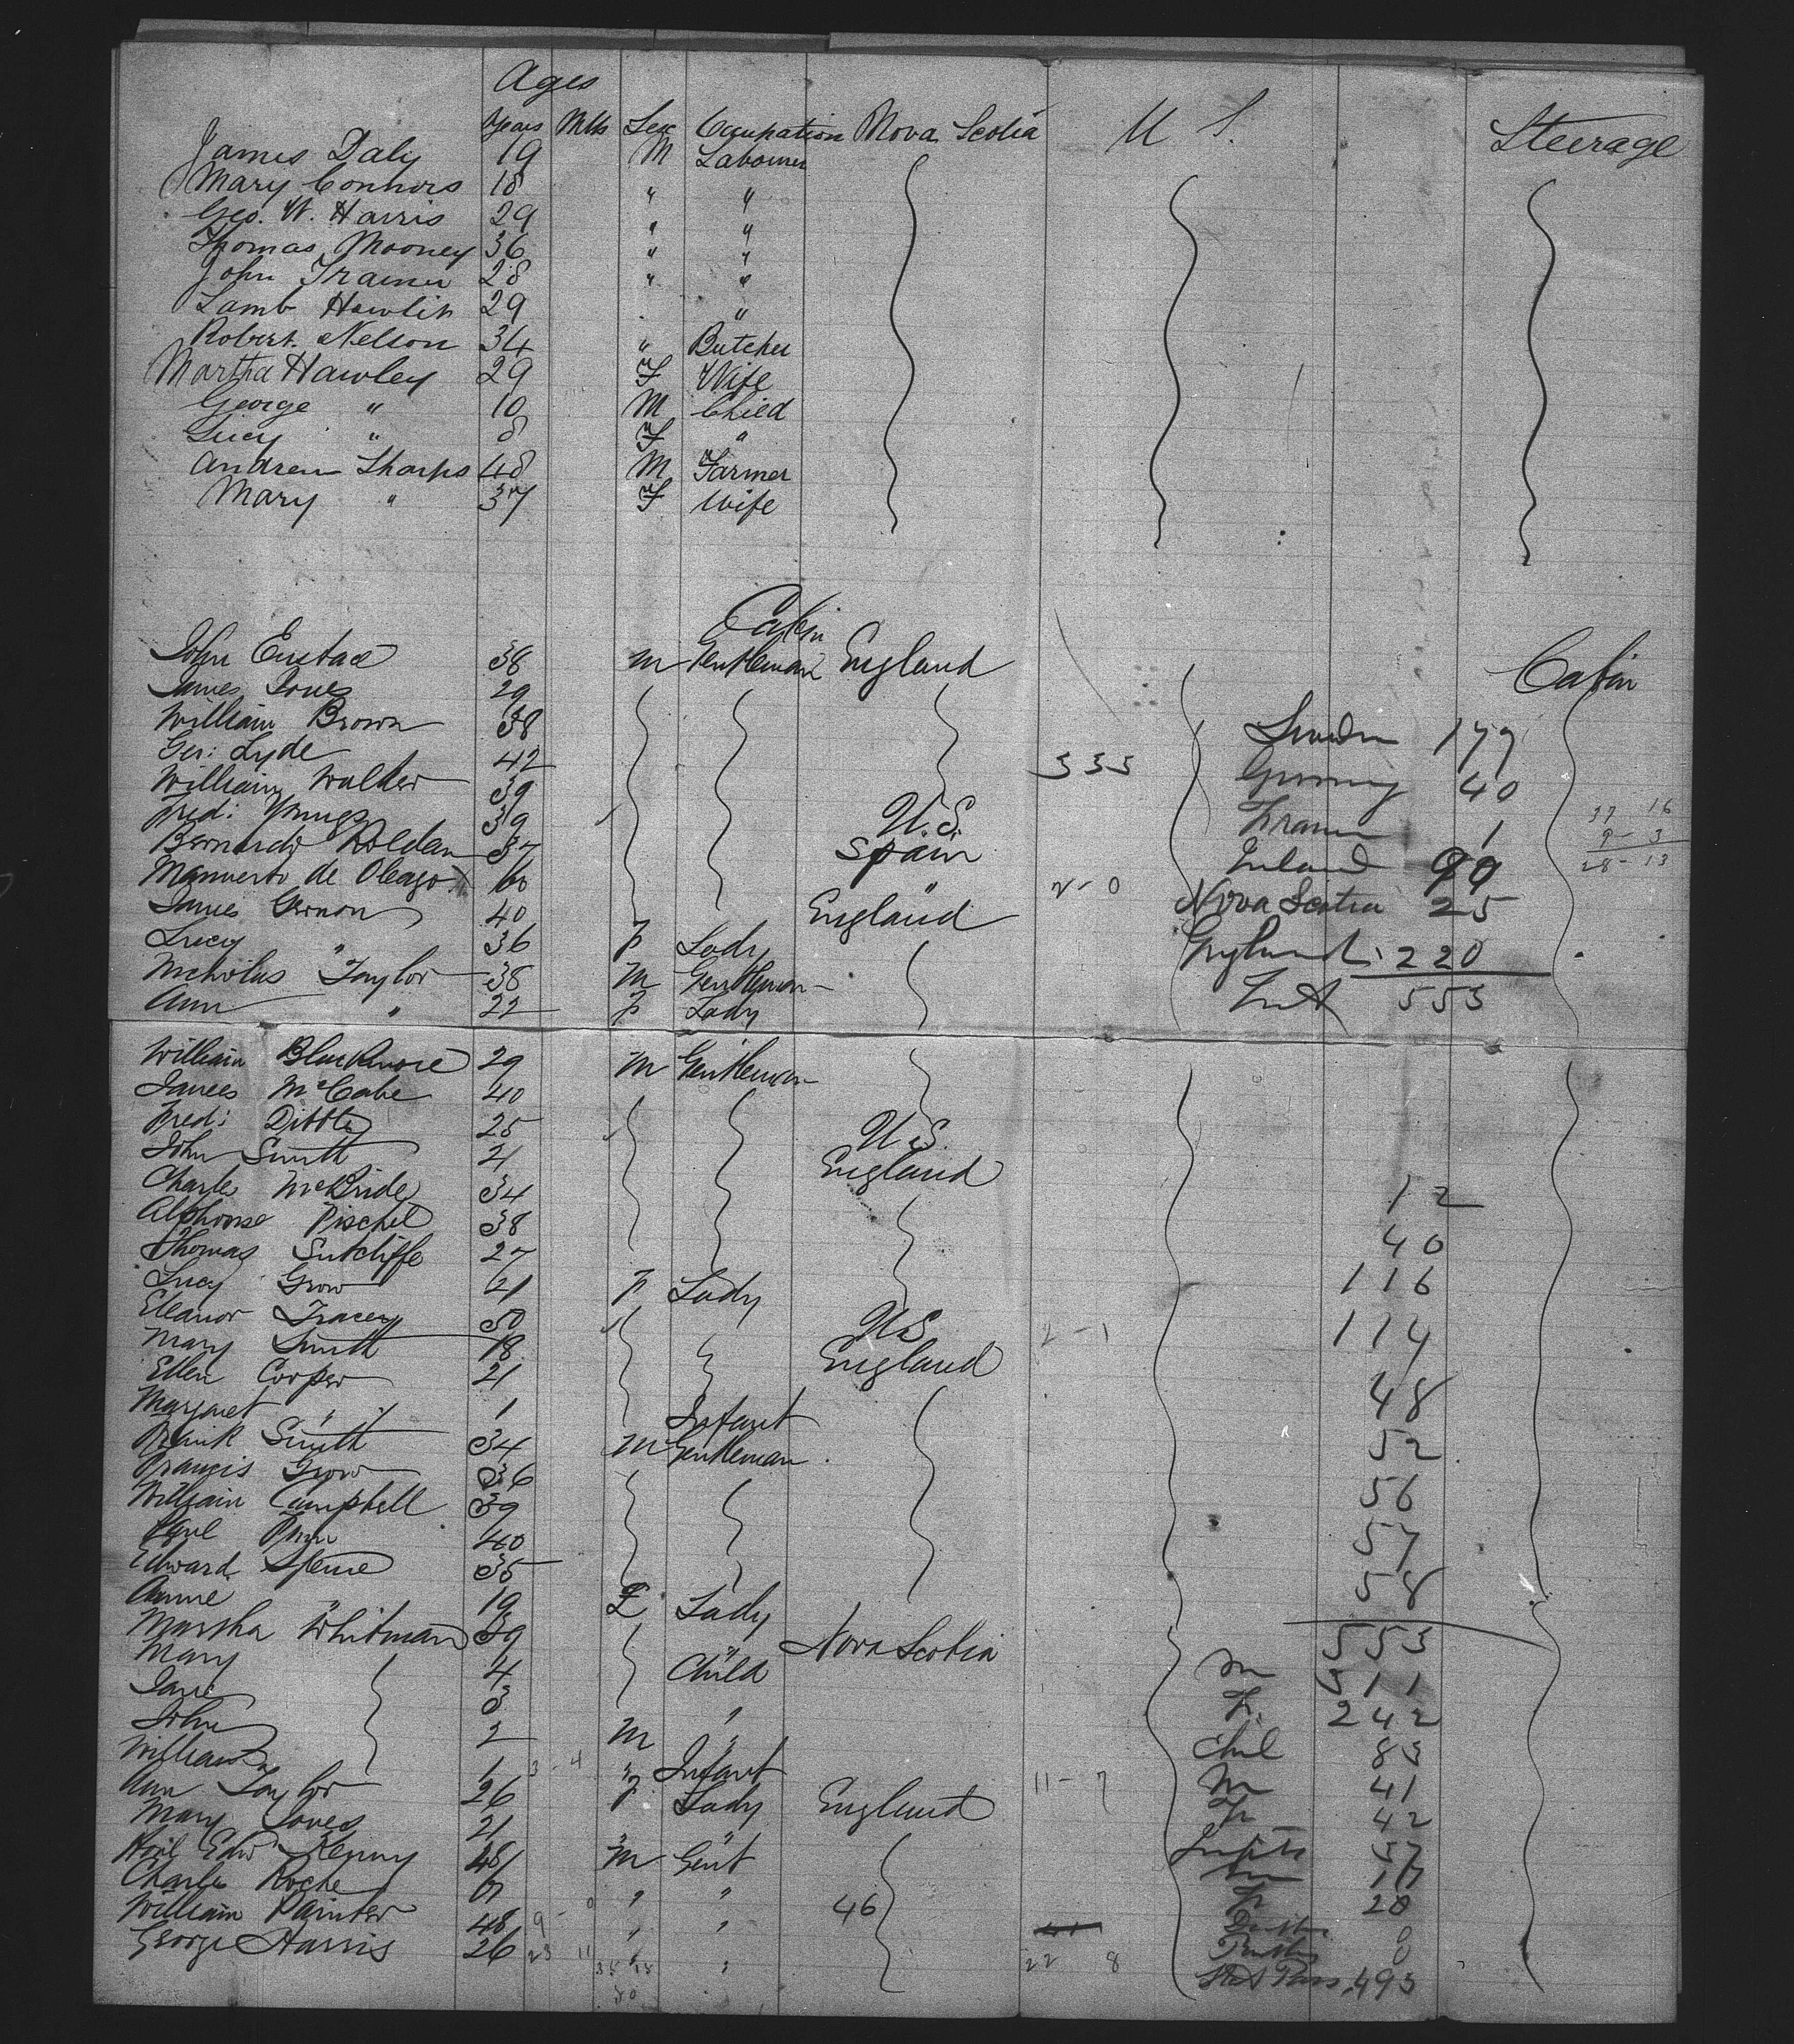 Ages
Years Mths Sex Occupation Nova Scotia U S. Steerage
James Daly 19 M Labourer
Mary Connors 18 " "
Geo. W. Harris 29 " "
Thomas Mooney 36 " "
John Trainer 28 " "
Lamb Hawlin 29 "
Robert Nelson 34 " Butcher
Martha Hawley 29 F Wife
George " 10 M Child
Lucy " 8 F "
Andrew Sharps 48 M Farmer
Mary " 37 F Wife
Cabin
John Eustace 38 M Gentleman England Cabin
James Jones 29
William Brown 38 Sweden 177
Geo: Lyde 42 333 Germany 40
William Walker 39
Fred: Young 39 U.S. France 1
Bernardo Roldan 37 Spain Ireland 90
Manuerto de Oleago 60 " 2-0 Nova Scotia 25
James Vernon 40 England
Lucy " 36 F Lady England 220
Nicholas Taylor 38 M Gentleman
Ann " 22 F Lady 553
37 16
9 - 3
28 - 13
William Blackmore 29 M Gentleman
James McCabe 40
Fred: Dibble 25 U.S.
John Smith 21 England
Charles McBride 34 12
Alphonse Pischel 38 40
Thomas Sutcliffe 27
Lucy Grow 21 F Lady 116
Eleanor Tracey 50 U.S 2-1 114
Mary Smith 18 England
Ellen Cooper 21 48
Margaret " 1 Infant
Frank Smith 34 M Gentleman 52
Francis Grow 36 56
William Campbell 39
40 57
Edward Sterne 35 58
Annie " 19 F Lady
Martha Whitman 39 " Nova Scotia 553
Mary 4 Child M 311
Jane 3 " F. 242
John 2 M " Chil 83
William 1 3-4 " Infant M 41
Ann Taylor 26 F Lady England 11-7 F 42
Mary Jones 21 " " Infts 37
Hon'l Edw Kenny 48 M Gent M 17
Charles Roche 61 " " F 20
William Painter 48 9-0 " " 46
George Harris 26 23 11 " " 22 8
Pass. 493